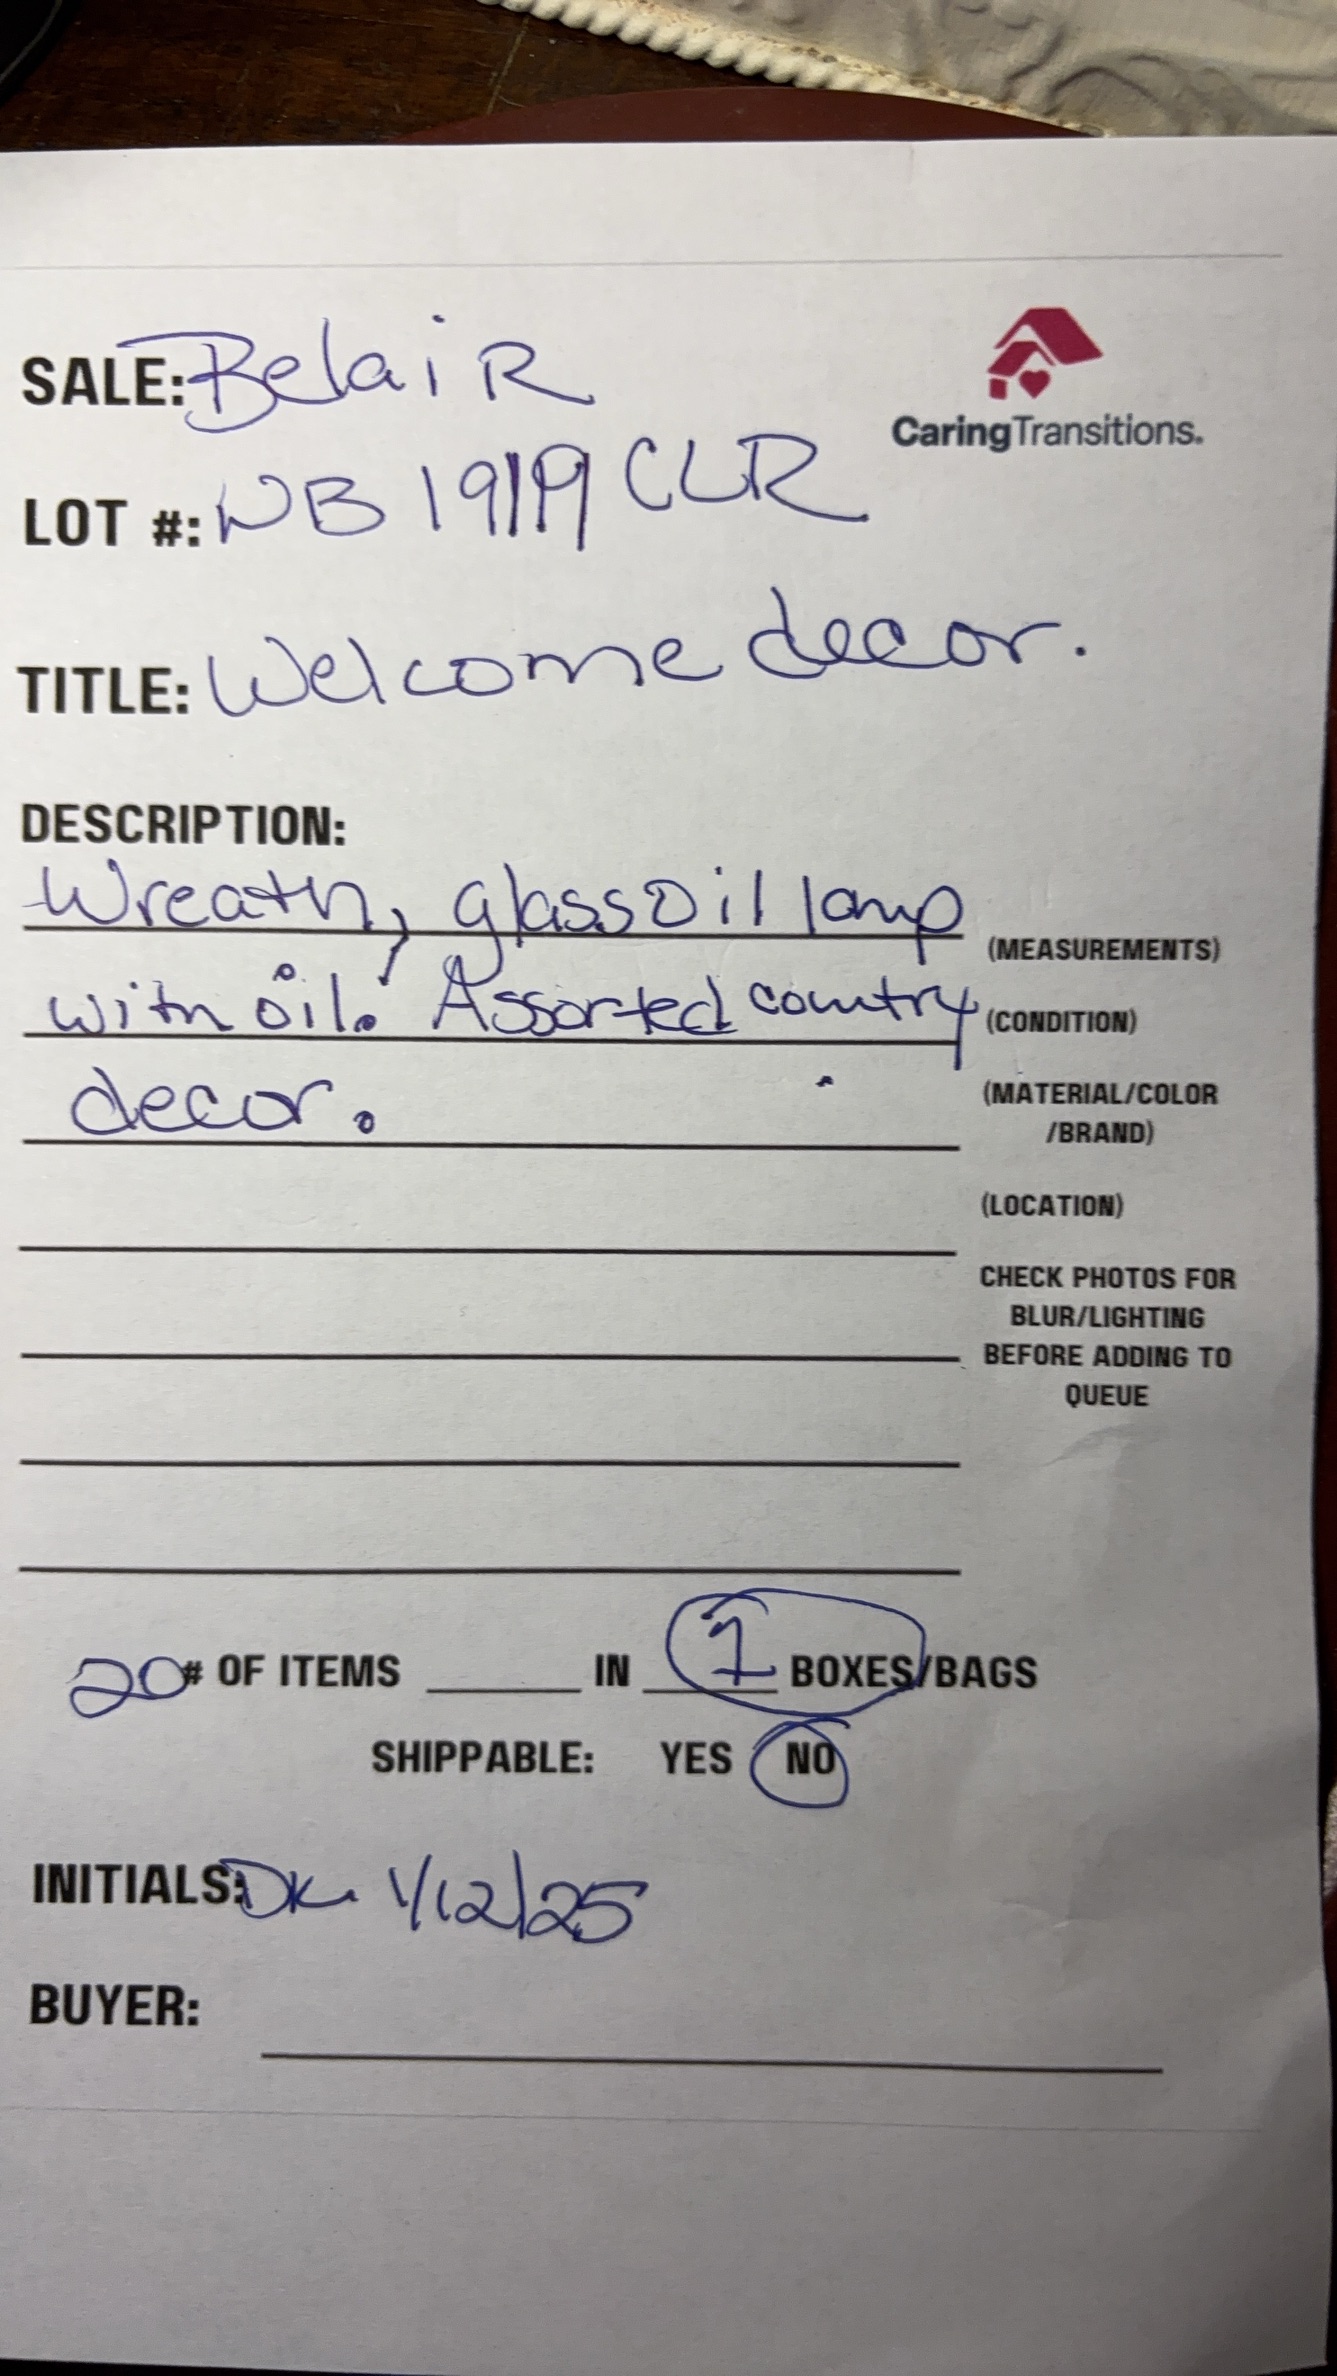 SALE: Belair
CaringTransitions.
LOT #: WB 1919 CLR
TITLE: Welcome decor.
DESCRIPTION:
Wreath, glass oil lamp
(MEASUREMENTS)
with oil. Assorted country
(CONDITION)
decor.
(MATERIAL/COLOR
/BRAND)
(LOCATION)
CHECK PHOTOS FOR
BLUR/LIGHTING
BEFORE ADDING TO
QUEUE
20 # OF ITEMS IN 1 BOXES/BAGS
SHIPPABLE: YES NO
INITIALS: DK 1/12/25
BUYER: